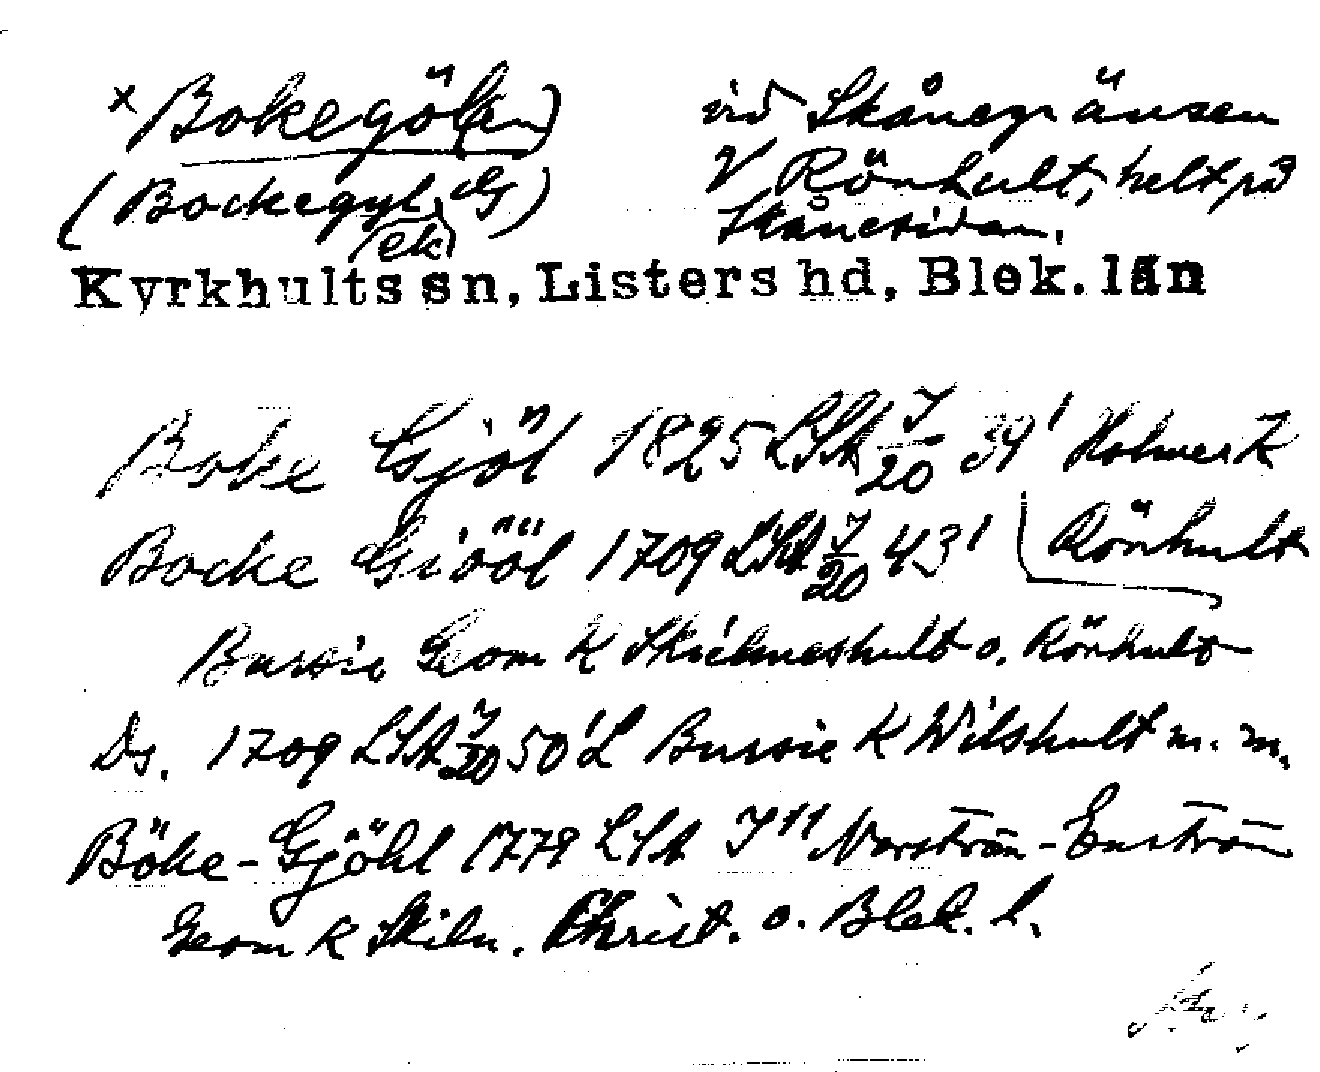 x Bokegöl(en) vid Skånegränsen
(Bockegyl, G) V Rönhult, helt på
(ek) Skånesidan.
Kyrkhults sn, Listers hd, Blek. län
Boke Gjöl 1825 LSA J/20 39' Holmer K
Bocke Giööl 1709 LSA J/20 43' Rönhult
Bursie Geom K Skielmeshult o. Rönhult
Ds. 1709 LSA J/20 50' L Bursie K Wilshult m. m.
Böke-Gjöhl 1779 LSA J 11 Norström-Enström
Geom K Skiln. Christ. o. Blek. L.